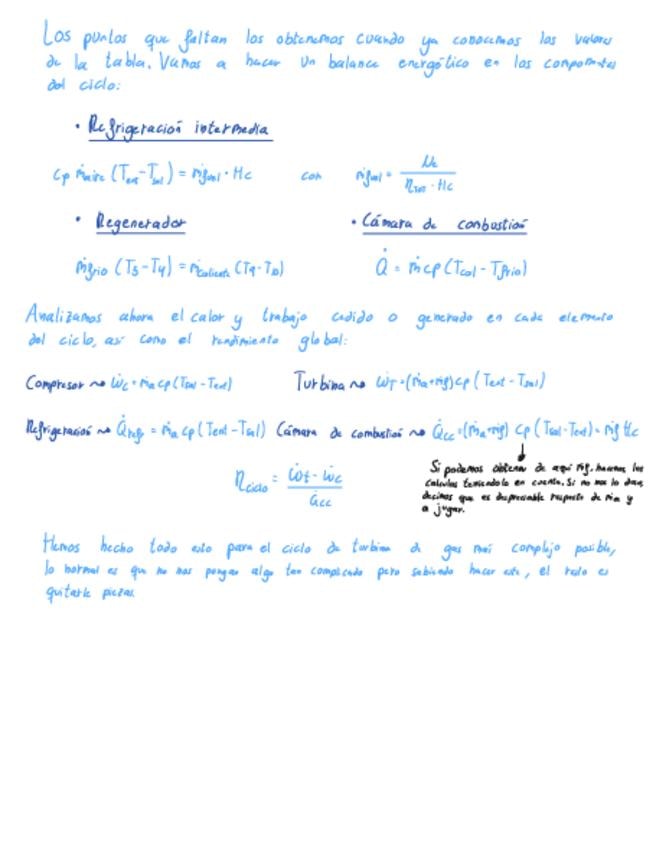 Los puntos que faltan los obtenemos cuando ya conocemos los valores
de la tabla. Vamos a hacer un balance energético en los componentes
del ciclo:
• Refrigeración intermedia
cp ṁaire (Tent - Tsal) = ṁfuel · Hc con ṁfuel = / ηTOT · Hc
• Regenerador • Cámara de combustión
ṁfrio (T5 - T4) = ṁcaliente (T9 - T10) Q̇ = ṁ cp (Tcal - Tfrio)
Analizamos ahora el calor y trabajo cedido o generado en cada elemento
del ciclo, así como el rendimiento global:
Compresor ~> ẇc = ṁa cp (Tsal - Tent) Turbina ~> ẇT = (ṁa + ṁf) cp (Tent - Tsal)
Refrigeración ~> Q̇refr = ṁa cp (Tent - Tsal) Cámara de combustión ~> Q̇cc = (ṁa + ṁf) cp (Tsal - Tent) = ṁf Hc
Si podemos obtener de aquí ṁf, hacemos los
cálculos teniéndola en cuenta. Si no nos lo dan,
decimos que es despreciable respecto de ṁa y
a jugar.
ηciclo = ẇt - ẇc / Q̇cc
Hemos hecho todo esto para el ciclo de turbina de gas más complejo posible,
lo normal es que no nos pongan algo tan complicado pero sabiendo hacer este, el resto es
quitarle piezas